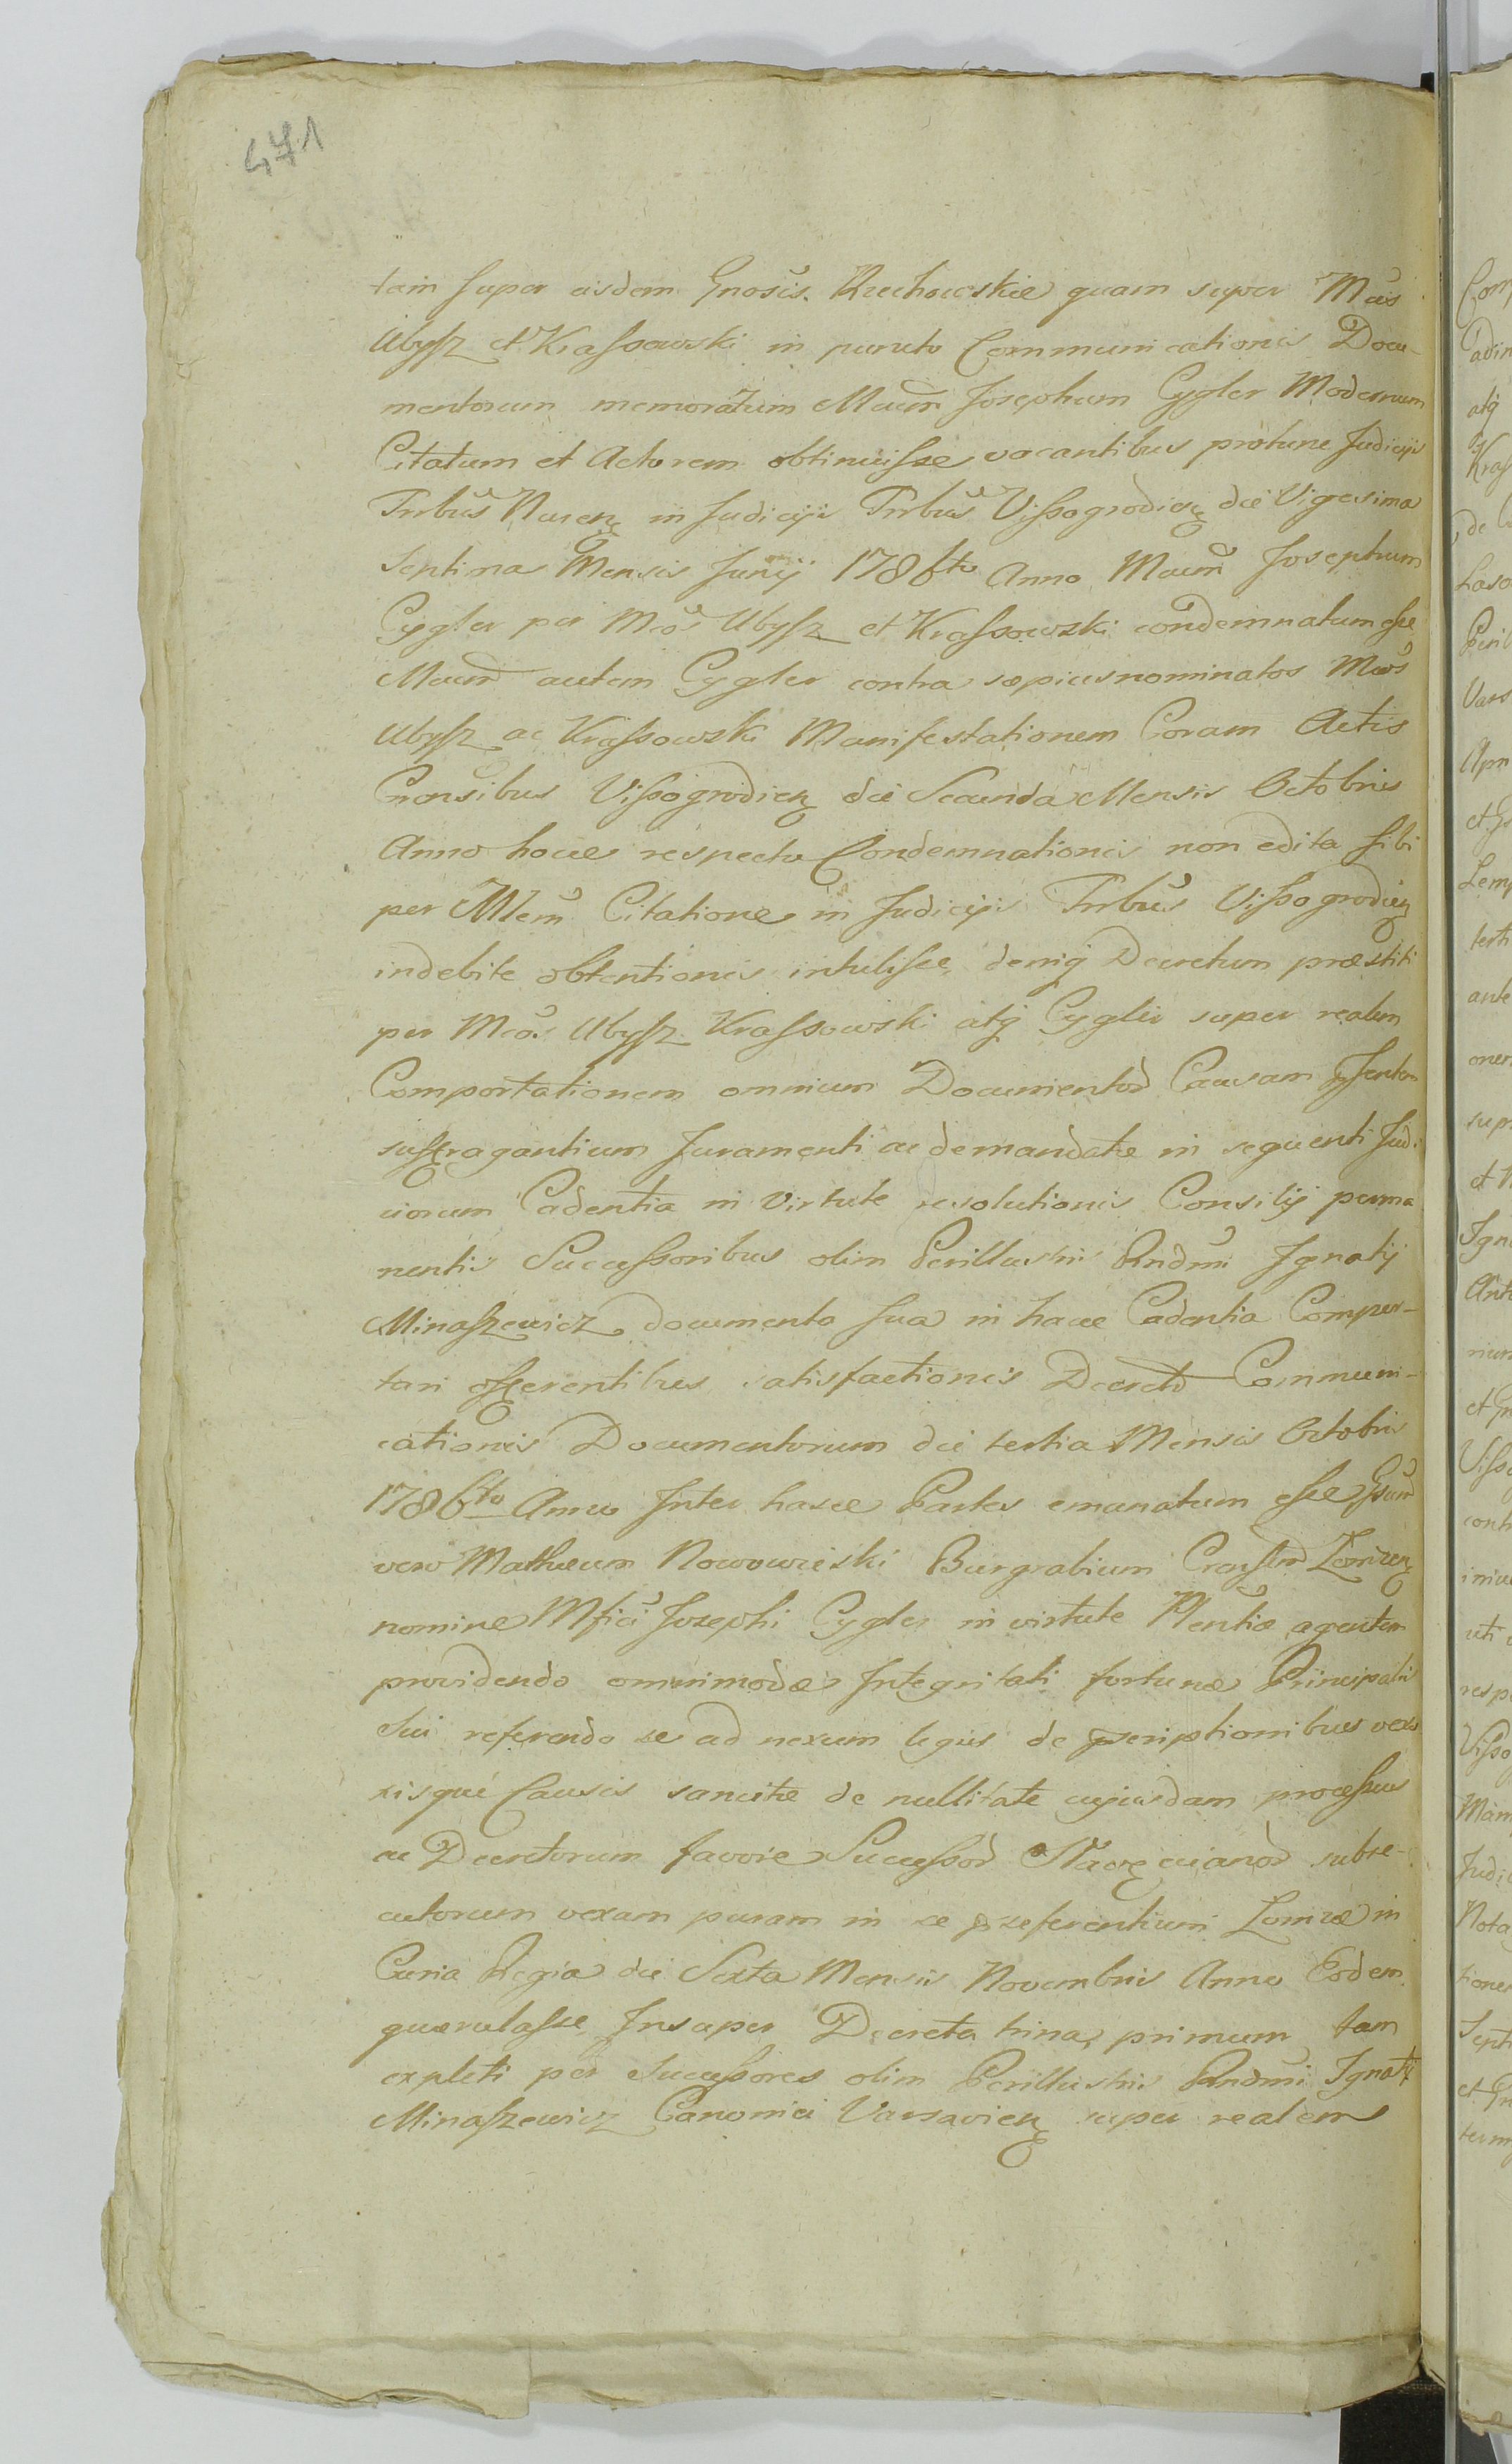 471
tam super eisdem Gnosis. Krechowskie quam super Mcos
Ubysz et Krassowski in puncto Communicationis Docu-
mentorum memoratum Mcum Josephum Cygler Modernum
Citatum et Actorem obtinuisse vacantibus protunc Judicijs
Trbus Nuren in Judicijs Trbus Vissogrodien die Vigesima
Septima Mensis Junij 1786to Anno Mcum Josephum
Cygler per Mcos Ubysz et Krassowski condemnatum esse
Mcum autem Cygler contra sæpiusnominatos Mcos
Ubysz ac Krassowski Manifestationem Coram Actis
Cnensibus Vissogrodien die Secunda Mensis Octobris
Anno hocce respectu Condemnationis non edita sibi
per Citatione in Judicijs Trbus Vissogrodien
indebite obtentionis intulisse, deniq Decretum præstiti
per Mcos Ubysz Krassowski atq Cygler super realem
Comportationem omnium Documentor Causam
suffragantium Juramenti ac demandatæ in sequenti Judi
ciorum Cadentia in virtute resolutionis Consilij perma
nentis Successoribus olim Perillustris Rndmi Ignatij
Minaszewicz documenta sua in hacce Cadentia Compor-
tari offerentibus satisfactionis Decreto Communi-
cationis Documentorum die tertia Mensis Octobris
1786to Anno Inter hasce Partes emanatum esse, Gsum
vero Mathæum Nowowieski Burgrabium Crensem Lomzen
nomine Mfici Josephi Cygler in virtute Plentiæ agentem
providendo omnimodæ Integritati fortunæ Principalis
Sui referendo se ad nexum legis de præscriptionibus vexo
risque Causis sancitæ de nullitate cujusdam processus
ac Decretorum favore Successor subse-
cutorum vexam puram in se præseferentium Lomzæ in
Curia Regia die Sexta Mensis Novembris Anno Eodem
quærulasse, Insuper Decreta trina, primum tam
expleti per Successores olim Perillustris Rndmi Ignatij
Minaszewicz Canonici Varsavien super realem